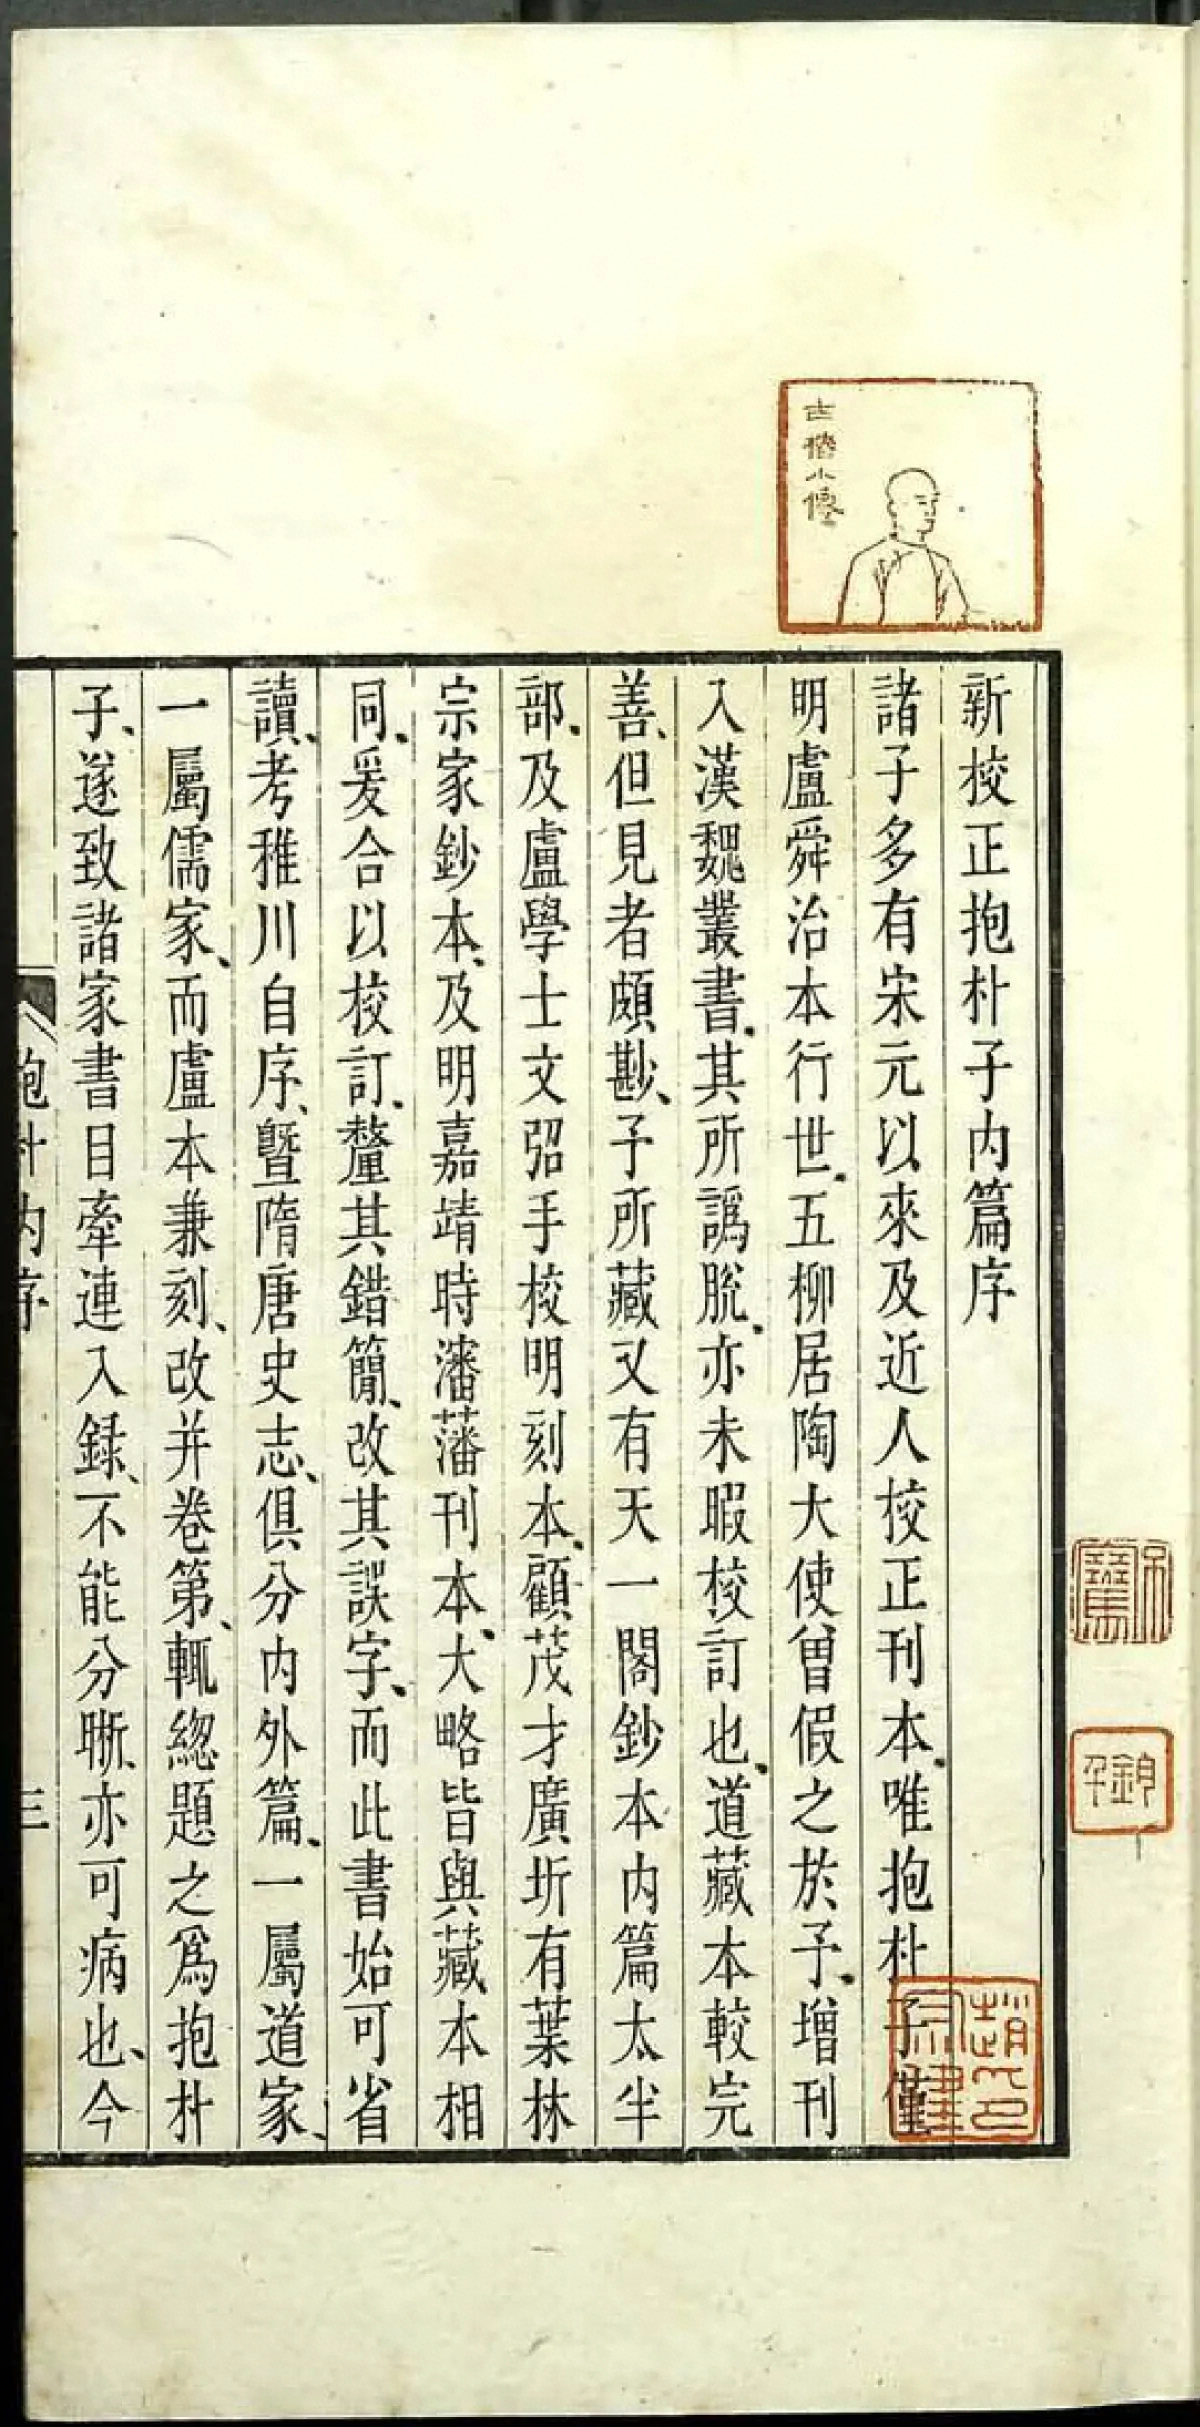 新校正抱朴子内篇序
諸子多有宋元以來及近人校正刊本唯抱朴子僅
明盧舜治本行世五柳居陶大使曾假之於予增刊
入漢魏叢書其所譌脫亦未暇校訂也道藏本較完
善但見者頗尠予所藏又有天一閣鈔本内篇太半
部及盧學士文弨手校明刻本顧茂才廣圻有葉林
宗家鈔本及明嘉靖時瀋藩刊本大略皆與藏本相
同爰合以校訂釐其錯簡改其誤字而此書始可省
讀考稚川自序暨隋唐史志俱分内外篇一屬道家
一屬儒家而盧本兼刻改并卷第輒總題之爲抱朴
子遂致諸家書目牽連入録不能分晰亦可病也今
抱朴内序
三